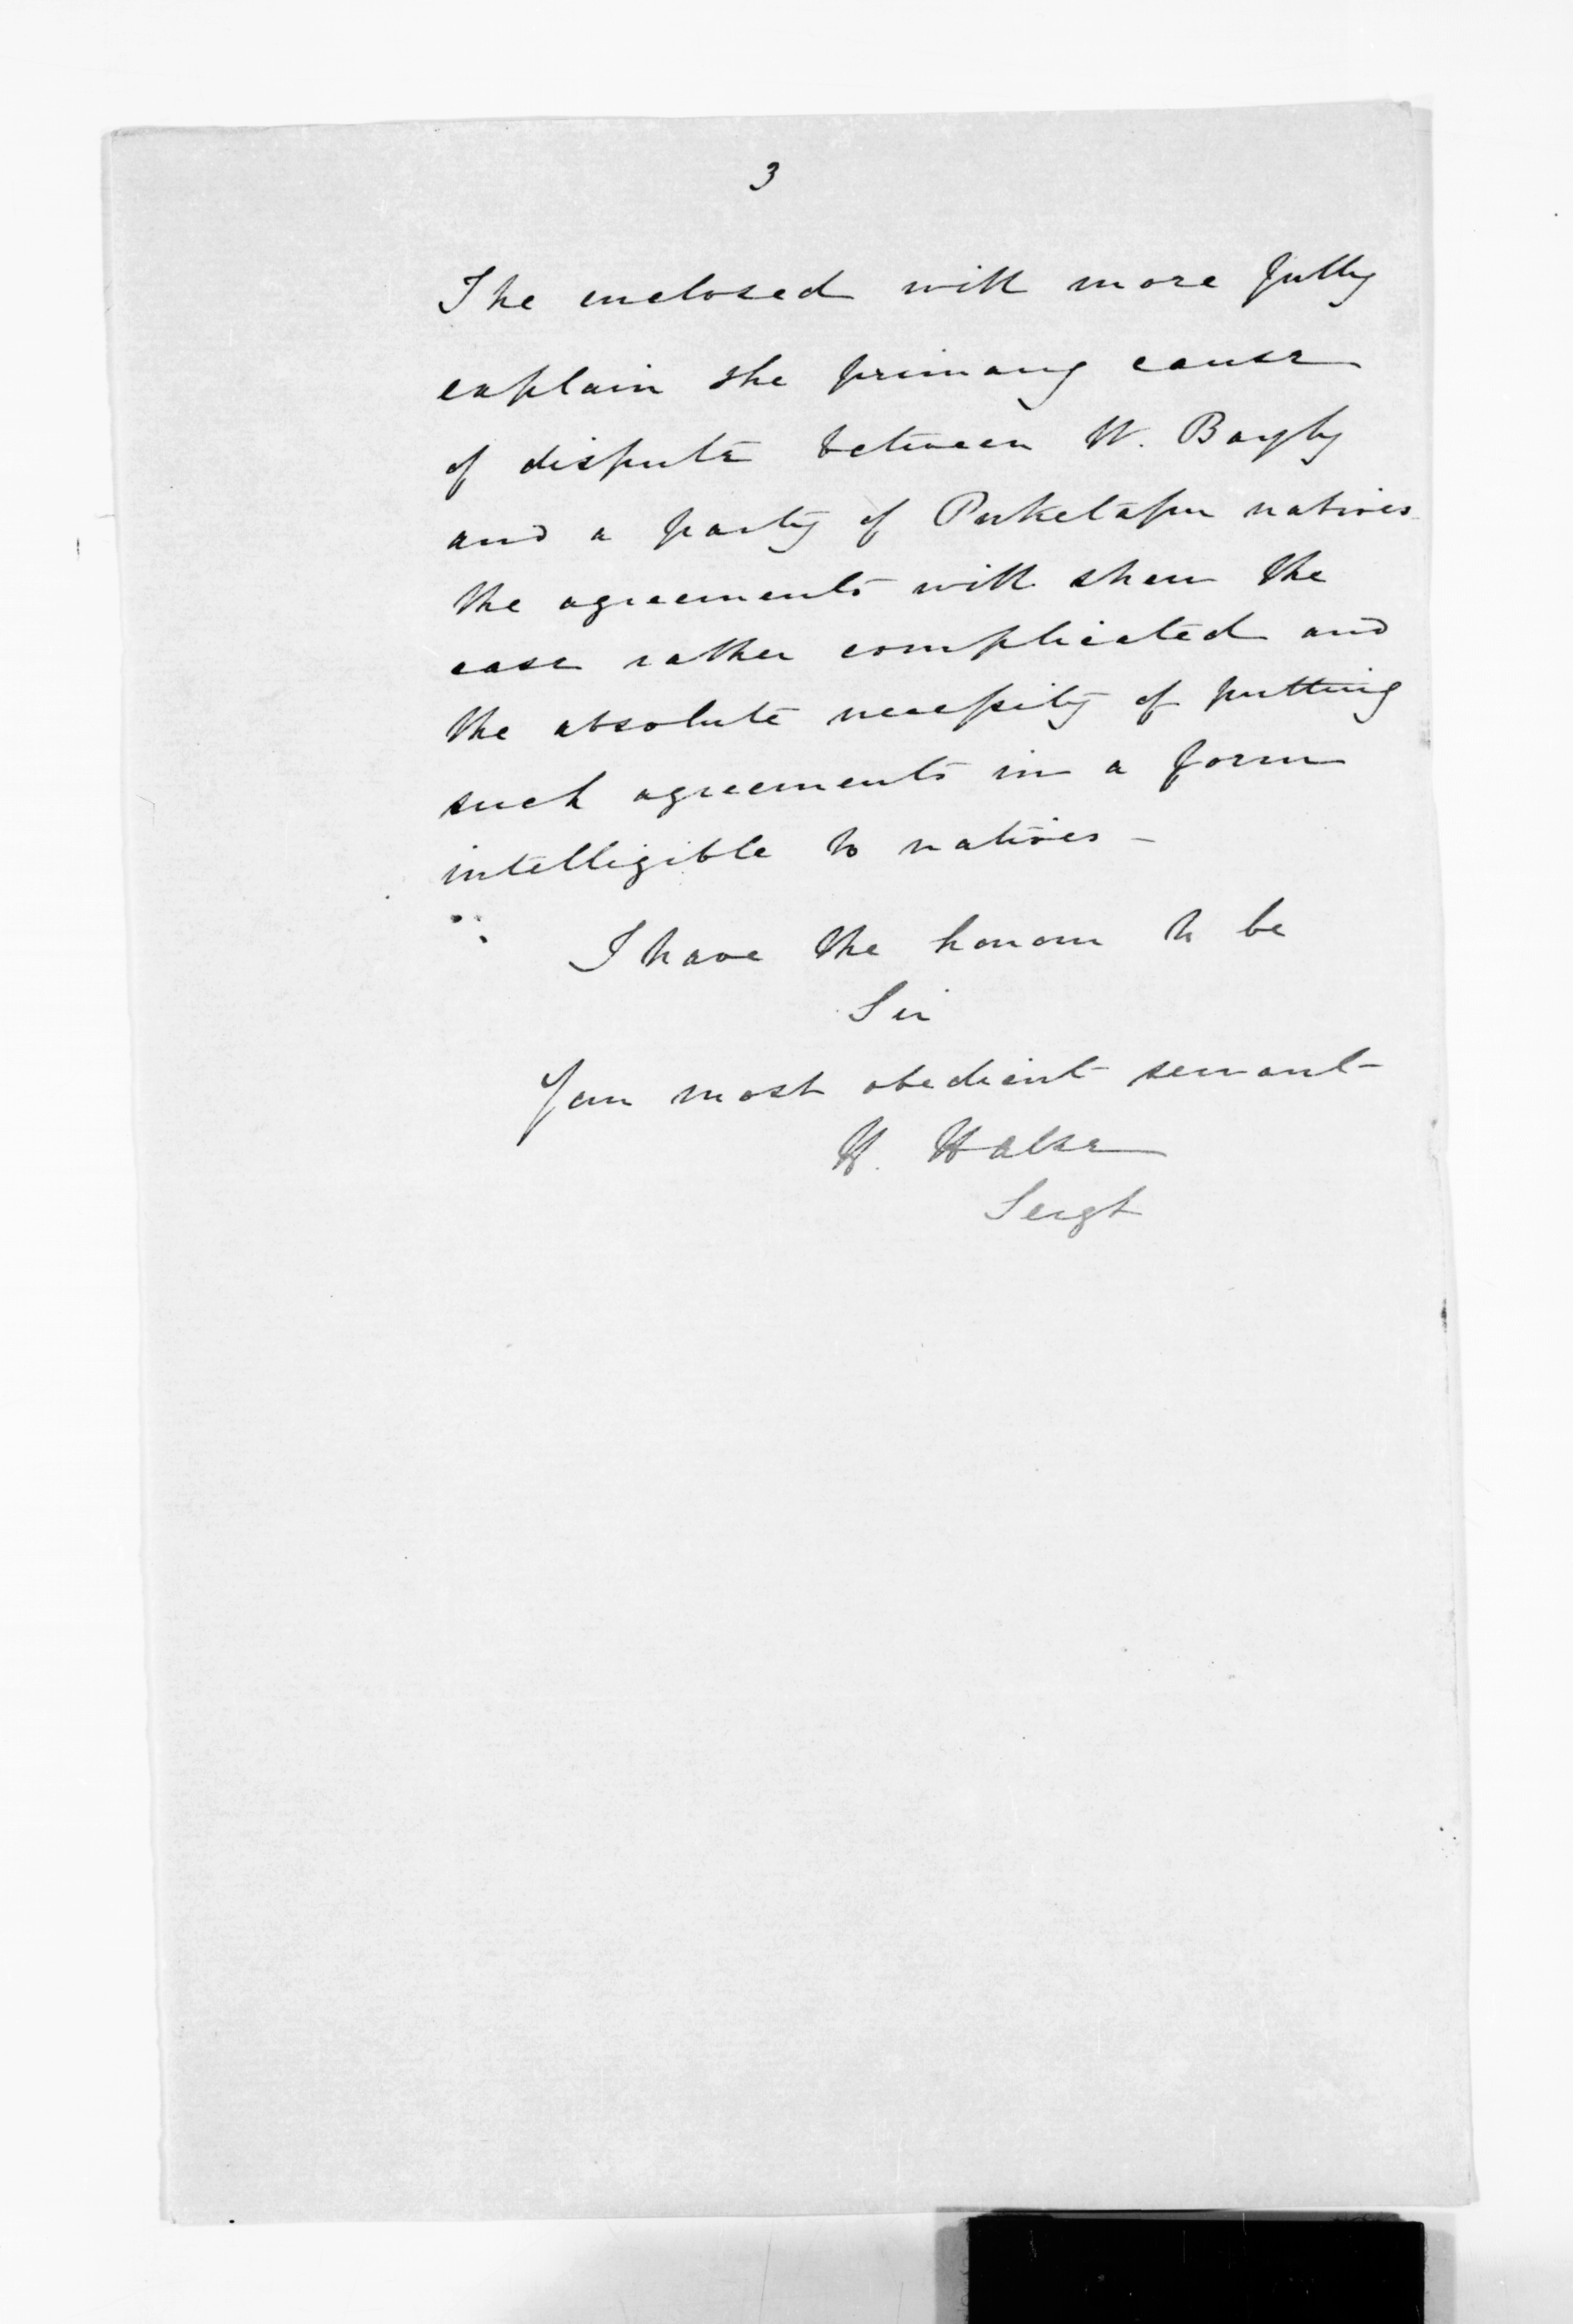 3
The enclosed will more fully
explain the primary cause
of dispute between W. Bayly
and a party of Puketapu natives
the agreements will shew the
case rather complicated and
the absolute necessity of putting
such agreements in a form
intelligible to natives -
I have the honour to be
Sir
Your most obedient servant
H. Halse
Sergt